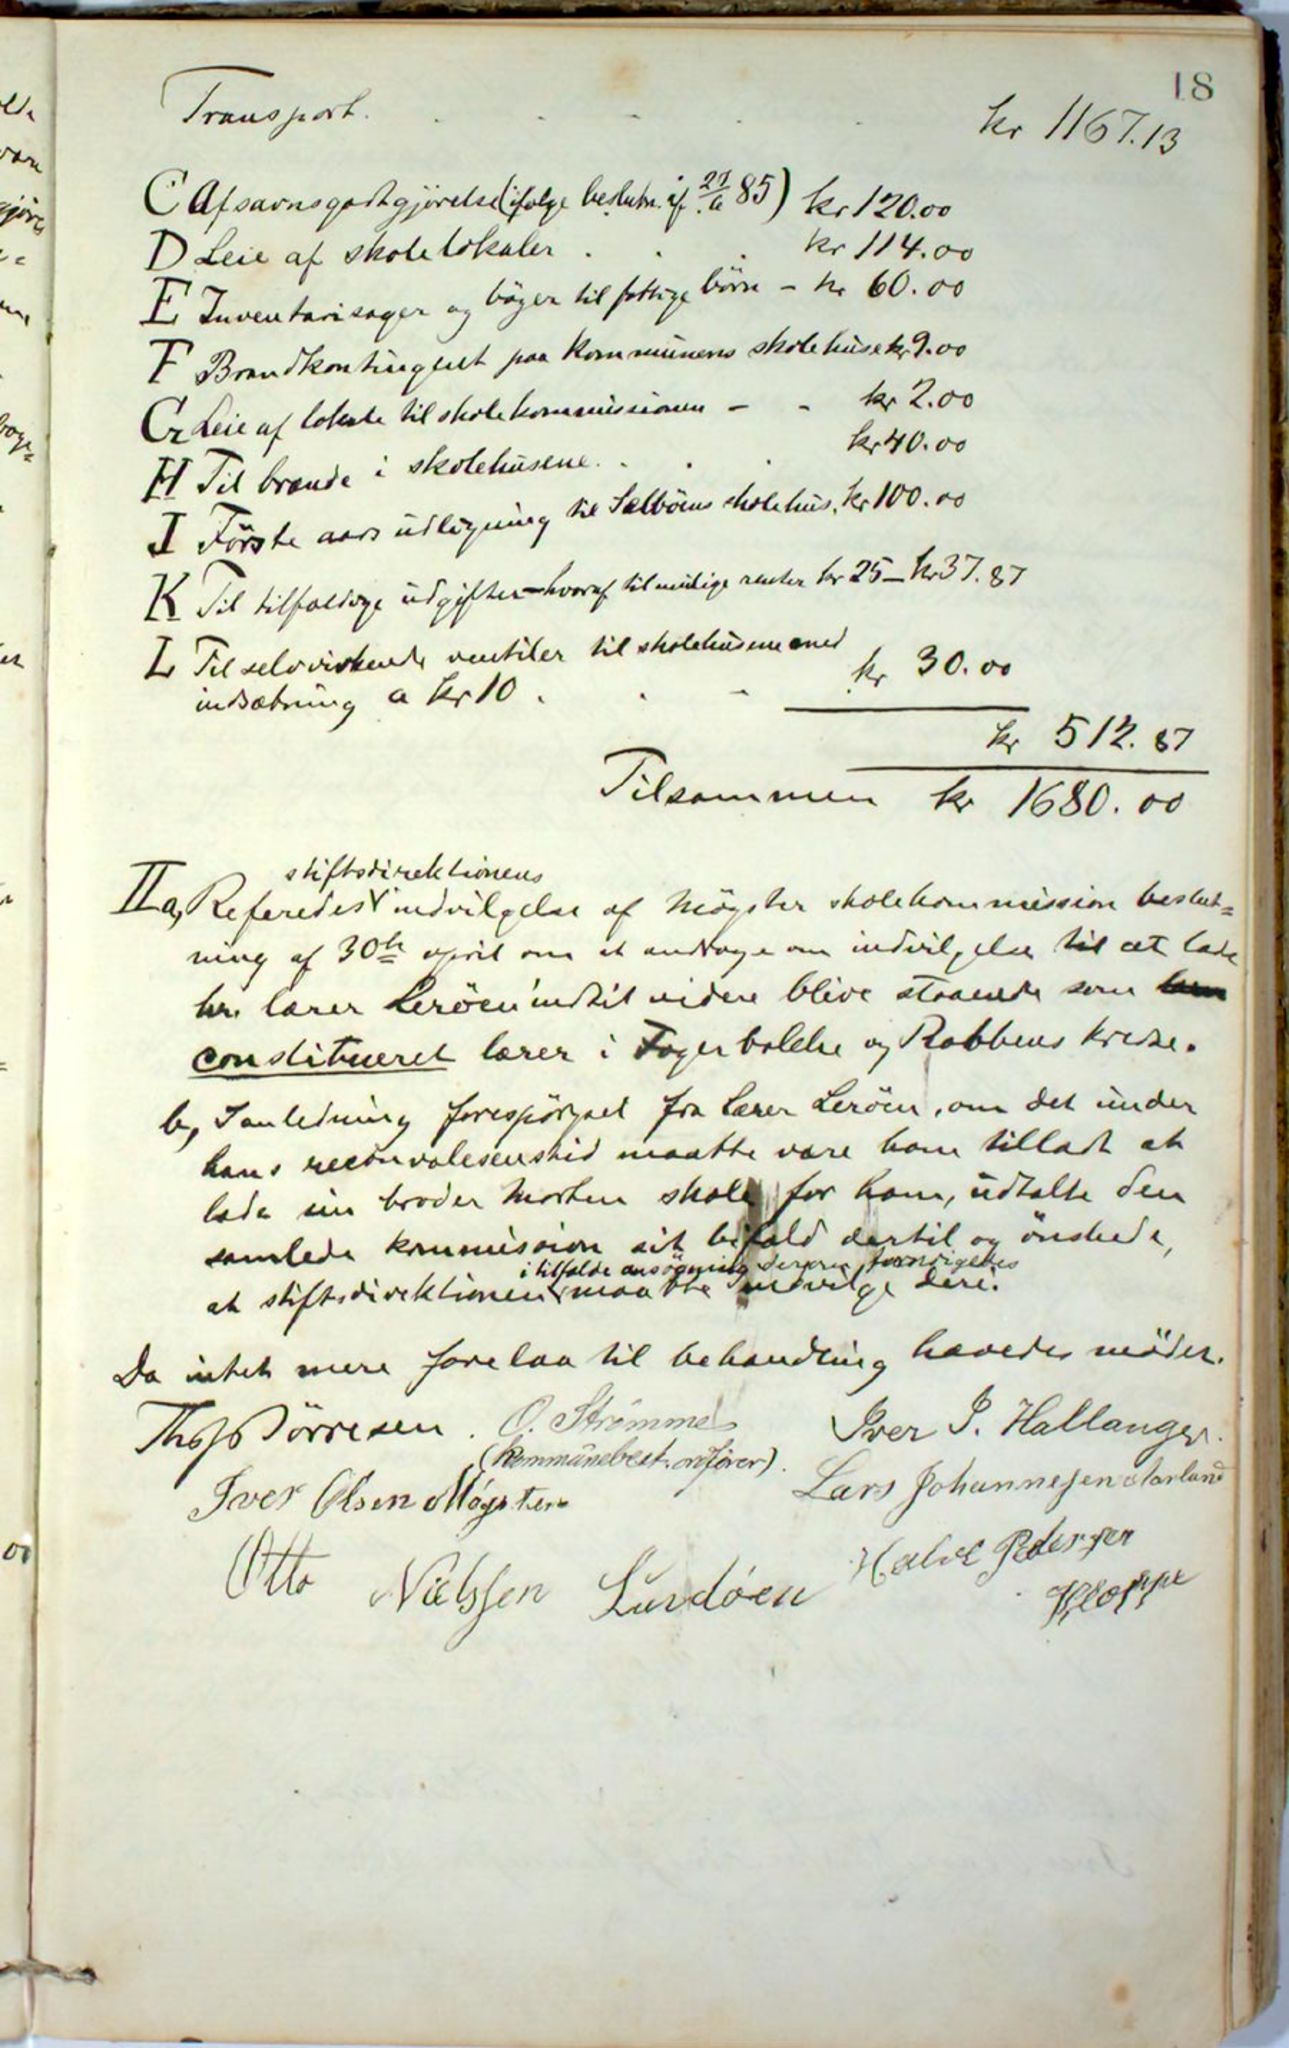 18
Transport. kr 1167.13
C Afsavnsgodtgjörelse (ifölge beslutn. af 85) kr 120.00
D Leie af skolelokaler . . . kr 114.00
E Inventarisager og böger til fattige börn - kr 60.00
F Brandkontingent paa kommunens skolehuse kr 9.00
G Leie af lokale til skolekommissionen - - kr 2.00
H Til brænde i skolehusene. . . . kr 40.00
I Förste aars udligning til Selbörns skolehus. kr 100.00
K Til tilfældige udgifter - hvoraf til mulige renter kr 25 - kr 37.87
L Til selvvirkende ventiler til skolehusene med
indsætning a kr 10 . . - kr 30.00
kr 512.87
Tilsammen kr 1680.00
stiftsdirektionens
II a, Referedes indvilgelse af Mögster skolekommission beslut=
ning af 30te april om at andrage om indvilgelse til at lade
hr. lærer Leröen indtil videre blive staaende som
constitueret lærer i Fagerbakke og Rabbens kredse.
b, I anledning forespörgsel fra lærer Leröen, om det under
hans reconvalesenstid maatte være ham tilladt at
lade sin broder Morten skole for ham, udtalte den
samlede kommission sit bifald dertil og önskede,
i tilfælde ansögning derom
at stiftsdirektionen maatte indvilge deri.
Da intet mere forelaa til behandling hævedes mödet.
Ths Törresen. O. Strömme Iver I. Hallanger.
(kommünebest. ordförer).
Iver Olsen Mögster Lars Johannesen
Otto Nielssen Lurdöen Halve Pedersen
Kloppe